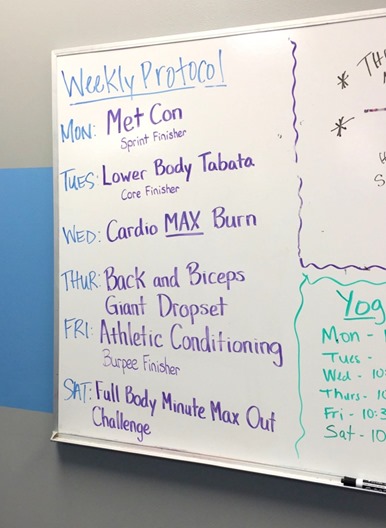 Weekly Protocol
MON: Met Con
Sprint Finisher
TUES: Lower Body Tabata
Core Finisher
WED: Cardio MAX Burn
THUR: Back and Biceps
Giant Dropset
FRI: Athletic Conditioning
Burpee Finisher
SAT: Full Body Minute Max Out
Challenge
* TH
*
Yog
Mon -
Tues -
Wed - 10:
Thurs - 10
Fri - 10:3
Sat - 10